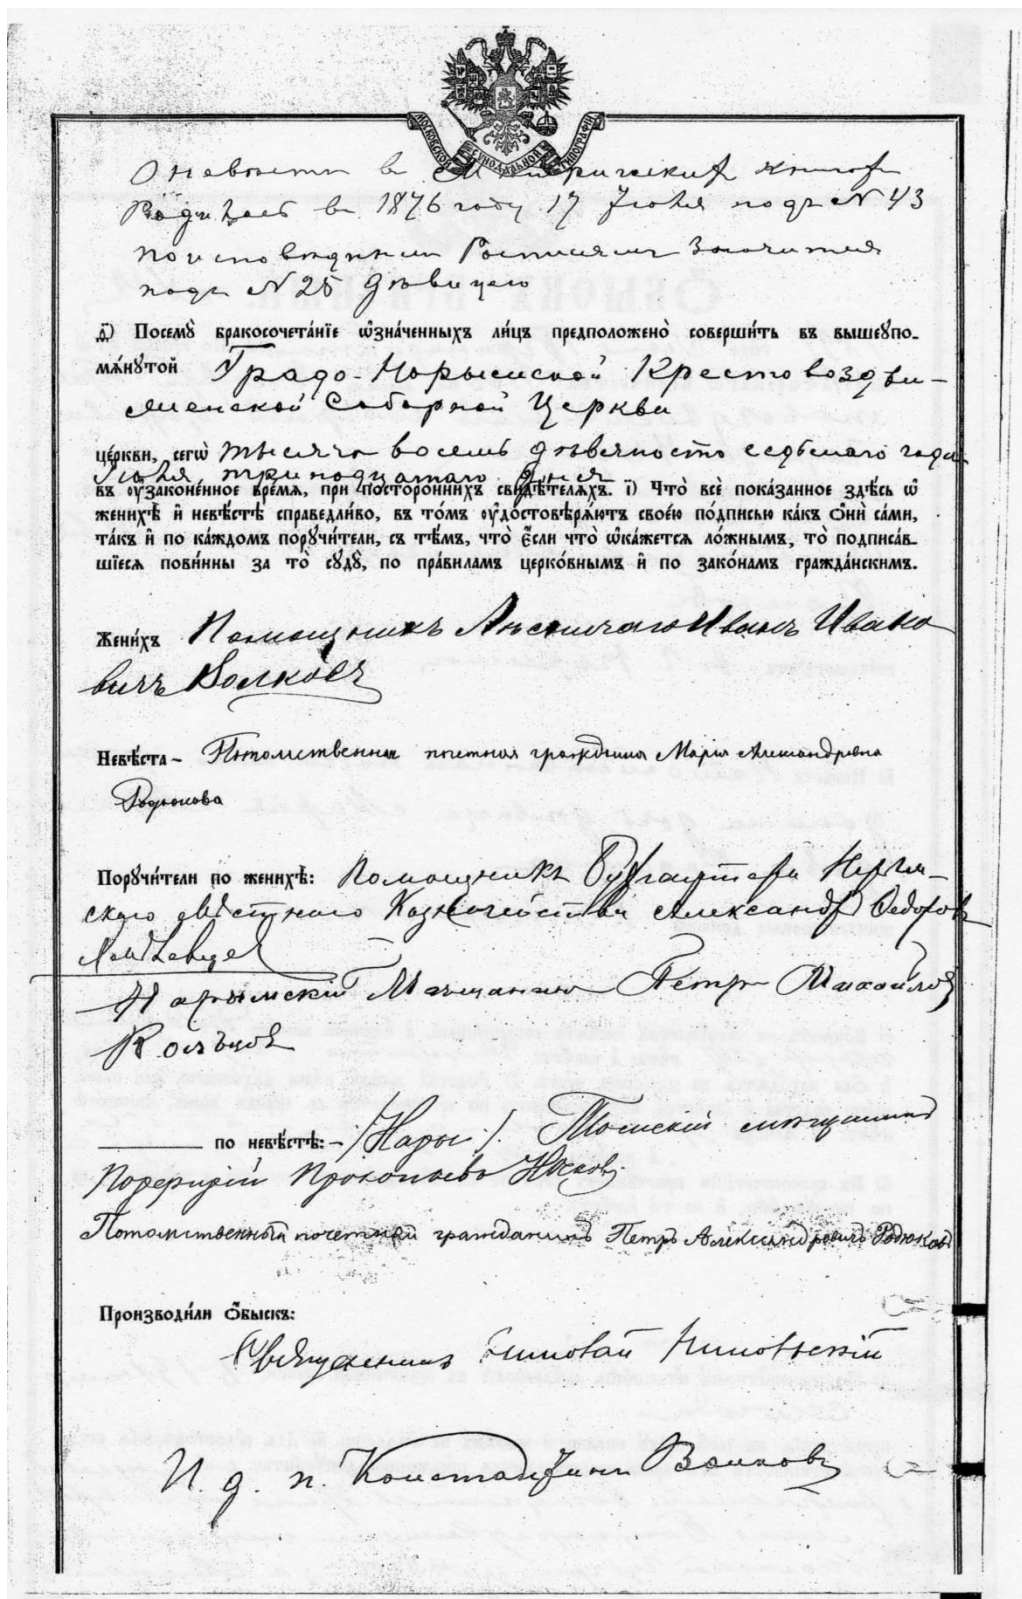 МОСКОВСКОЙ СѴНОДАЛЬНОЙ ТИПОГРАФІИ
О невѣсти въ Метрическихъ книгах
Родилась въ 1876 году 17 Іюля подъ N 43
по исповѣднымъ Росписям значится
подъ N 25 дѣвицею
д҃) Посемꙋ̀ бракосочета́нїе ѡ҆зна́ченныхъ ли́цъ предположено̀ соверши́ть въ вышеꙋпо-
мѧ́нꙋтой Градо-Нарымской Крестовоздви-
женской Соборной Церкви
це́ркви, сегѡ̀ тысяча восемь девяносто седьмаго года
Іюля тринадцатаго дня
въ ᲂу҆зако́ненное вре́мя, при посторо́ннихъ свидѣ́телѧхъ. і҃) Что̀ всѐ пока́занное здѣ́сь ѡ҆
женихѣ̀ и҆ невѣ́стѣ справедли́во, въ то́мъ ᲂу҆достовѣрѧ́ютъ свое́ю по́дписью ка́къ ѻ҆нѝ са́ми,
та́къ и҆ по ка́ждомъ порꙋчи́тели, съ тѣ́мъ, что̀ є҆́сли что̀ ѡ҆ка́жется ло́жнымъ, то̀ подписа́в-
шїеся пови́нны за то̀ сꙋдꙋ̀, по пра́виламъ церко́внымъ и҆ по зако́намъ гражда́нскимъ.
Жени́хъ Помощникъ Лѣсничаго Иванъ Ивано
вичъ Волковъ
Невѣ́ста – Потомственная почетная гражданка Марія Александровна
Родюкова
Порꙋчи́тели по женихѣ̀: Помощникъ Бухгалтера Нарым-
скаго мѣстнаго Казначейства Александр Федоров
Нарымскій Мѣщанинъ Петръ Михайлов
Кольцов
по невѣ́стѣ: – Томскій мещанинъ
Порфирій Прокопьевъ Носков
Потомственный почетный гражданинъ Петръ Александровичъ Родюковъ
Производи́ли ѻ҆́быскъ:
Священникъ
И. д. п. Константинъ Волковъ